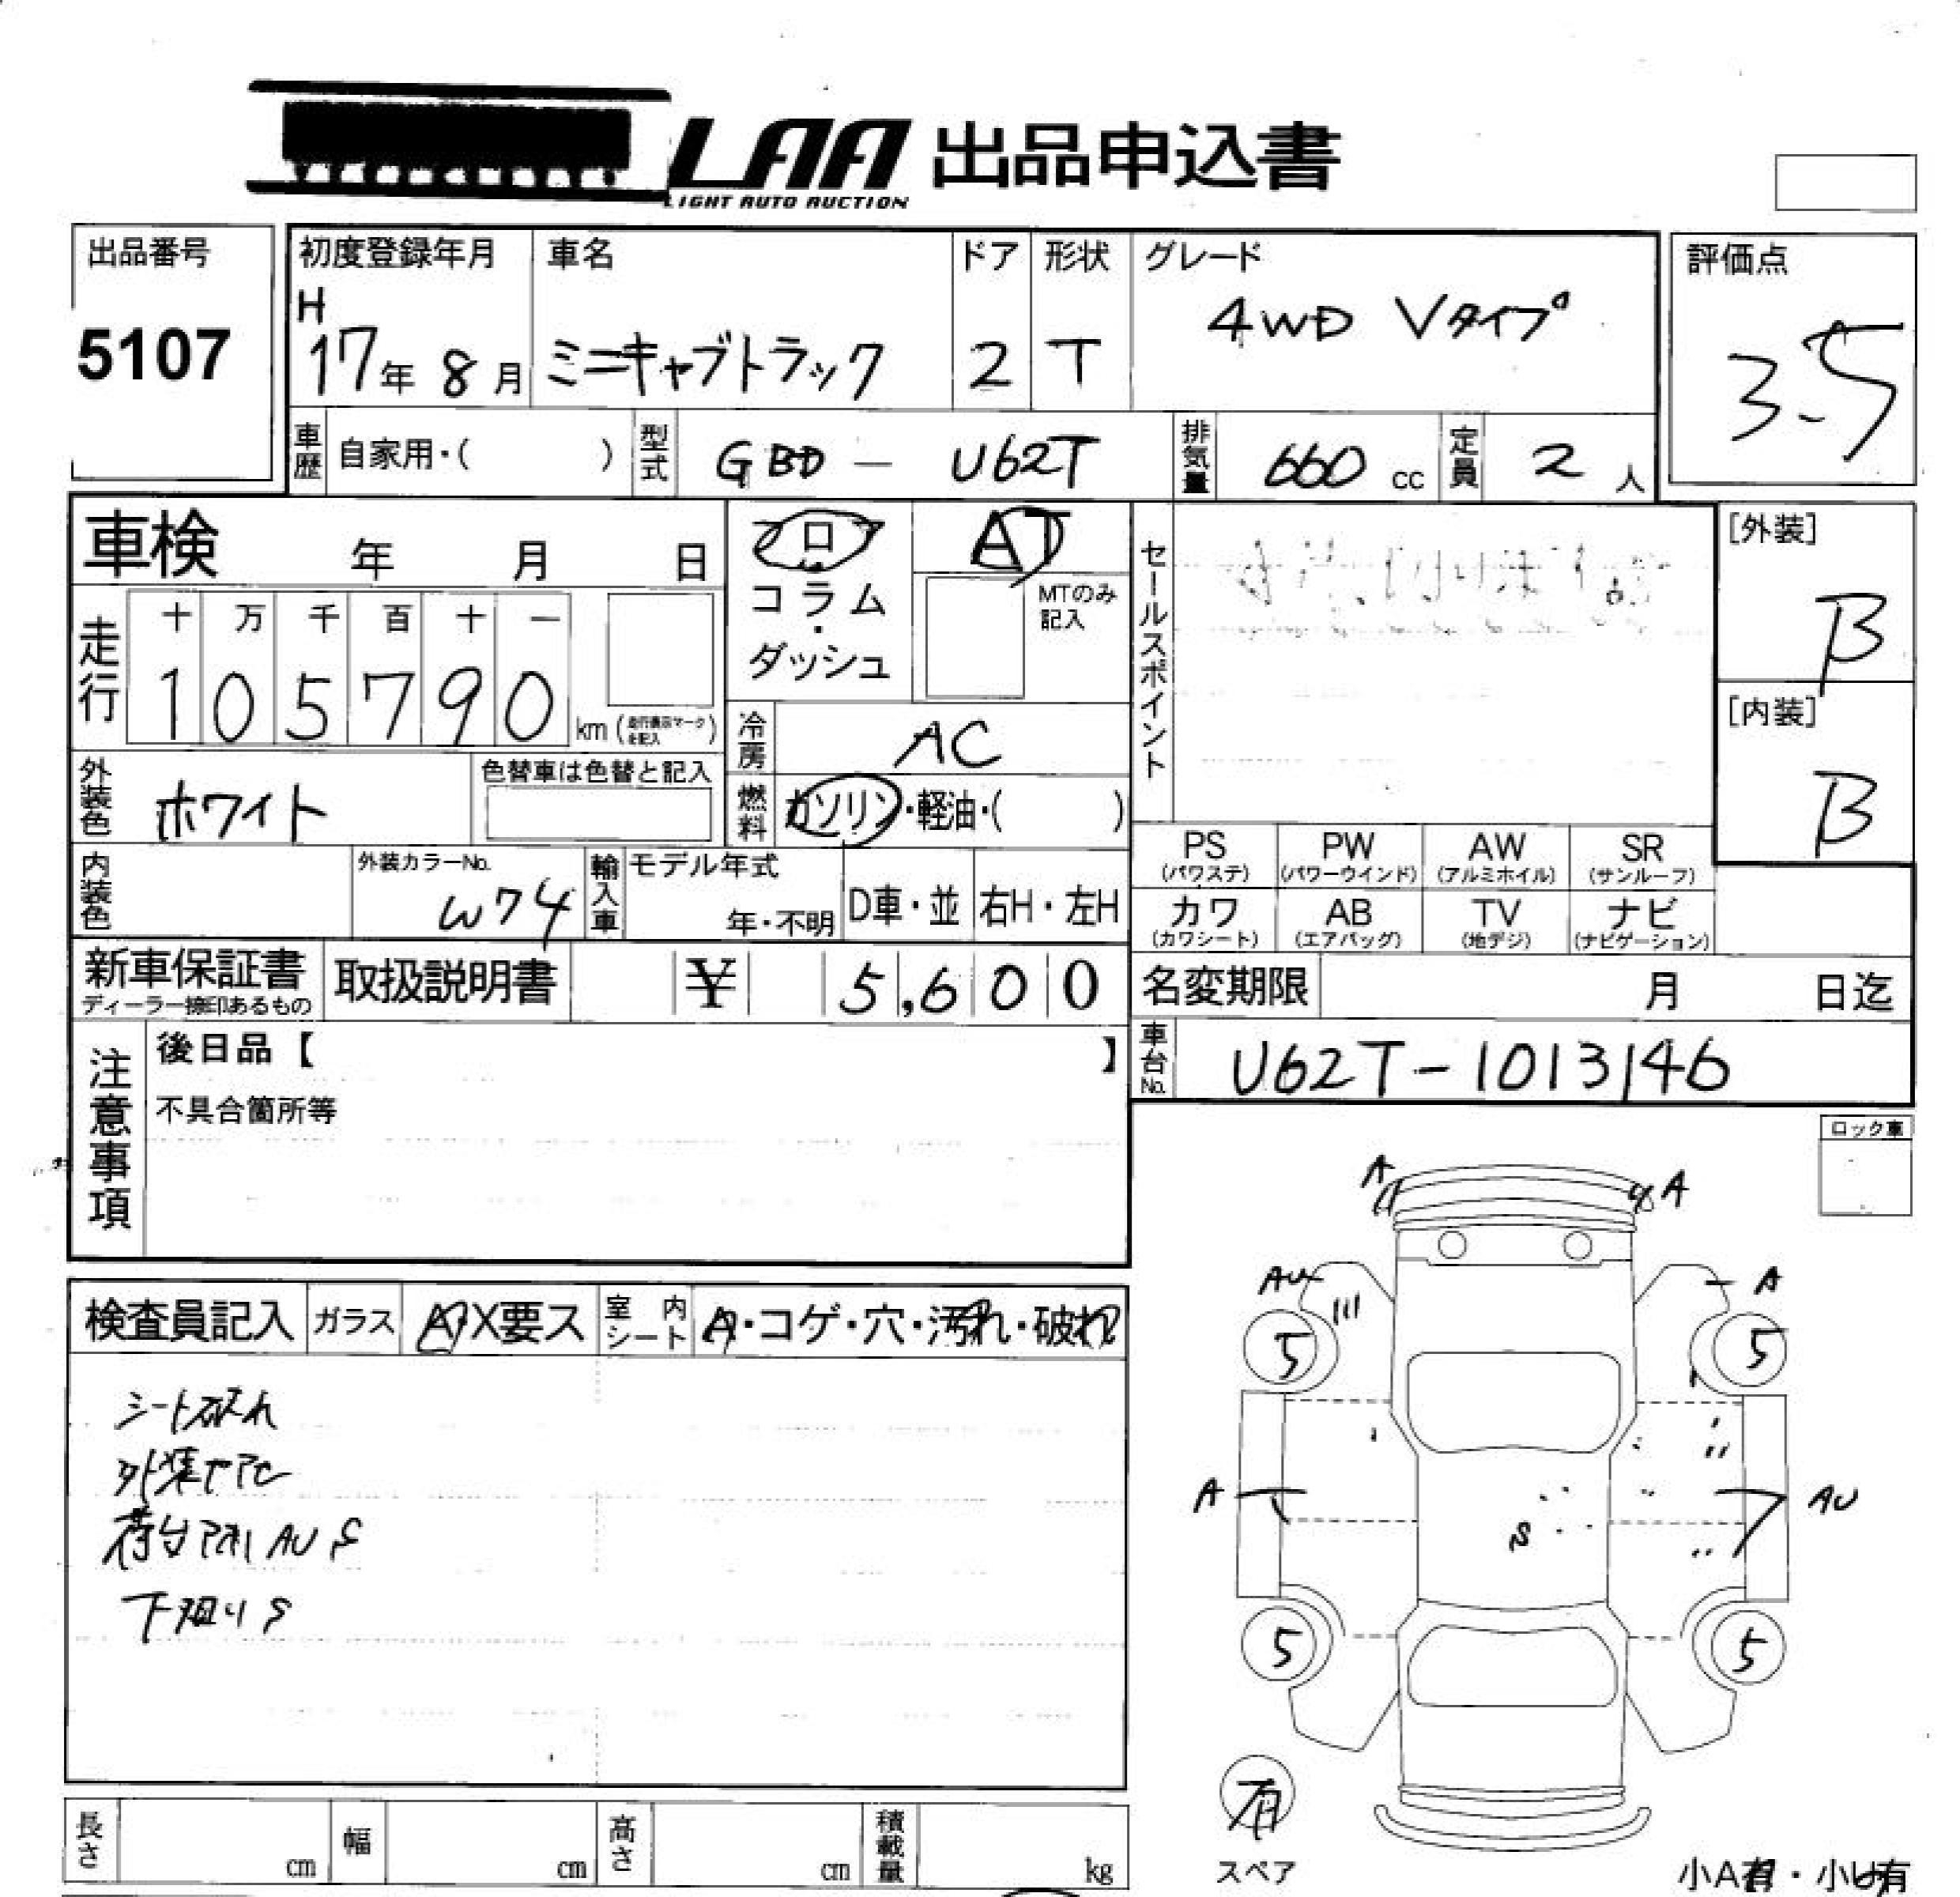 LAA 出品申込書
LIGHT AUTO AUCTION
出品番号
5107
初度登録年月
H
17年 8月
車名
ミニキャブトラック
ドア
2
形状
T
グレード
4WD Vタイプ
評価点
3.5
車歴 自家用・( )
型式 GBD - U62T
排気量 660 cc
定員 2 人
車検 年 月 日
フロア
コラム
・
ダッシュ
AT
MTのみ
記入
セールスポイント
[外装]
B
[内装]
B
走行
十 万 千 百 十 一
1 0 5 7 9 0 km (走行表示マークを記入)
冷房 AC
外装色 ホワイト
色替車は色替と記入
燃料 ガソリン・軽油・( )
PS (パワステ)
PW (パワーウインド)
AW (アルミホイル)
SR (サンルーフ)
内装色
外装カラーNo.
W74
輸入車 モデル年式
年・不明
D車・並
右H・左H
カワ (カワシート)
AB (エアバッグ)
TV (地デジ)
ナビ (ナビゲーション)
新車保証書
ディーラー捺印あるもの
取扱説明書
¥ 5,600
名変期限 月 日迄
車台No. U62T-1013146
注意事項
後日品【 】
不具合箇所等
ロック車
検査員記入
ガラス A・X要ス
室内シート A・コゲ・穴・汚れ・破れ
シート破れ
外装キズ
荷台 AU S
下廻り S
A
A
AU
A
5
5
A
AU
S
5
5
有
スペア
小A有・小U有
長さ cm
幅 cm
高さ cm
積載量 kg